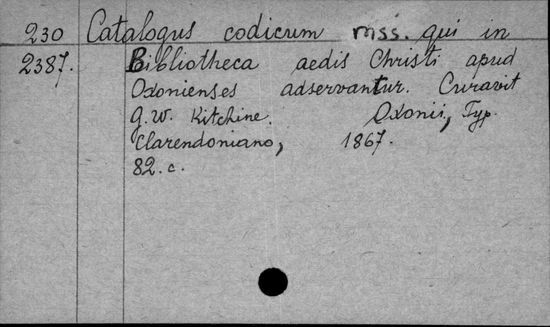 230 Catalogus codicum mss. qui in
2387. Bibliotheca aedis Christi apud
Oxonienses adservantur. Curavit
G. W. Kitchine. Oxonii, Typ.
Clarendoniano, 1867.
82. c.